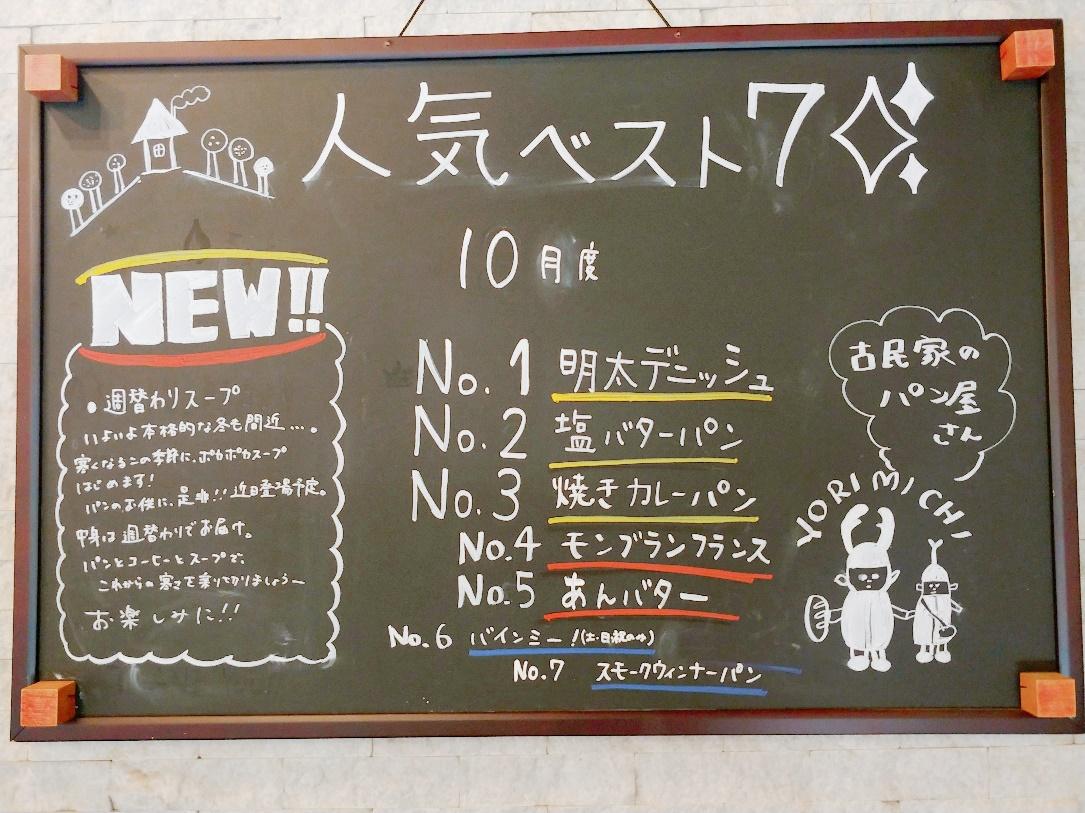 人気ベスト7
10月度
NEW!!
・週替わりスープ
いよいよ本格的な冬も間近…。
寒くなるこの季節に、ポカポカスープ
はじめます！
パンのお供に、是非!! 近日登場予定。
中身は週替わりでお届け。
パンとコーヒーとスープで、
これからの寒さを乗りきりましょう〜
お楽しみに!!
No.1 明太デニッシュ
No.2 塩バターパン
No.3 焼きカレーパン
No.4 モンブランフランス
No.5 あんバター
No.6 バインミー！(土・日・祝のみ)
No.7 スモークウィンナーパン
古民家の
パン屋
さん
YORIMICHI